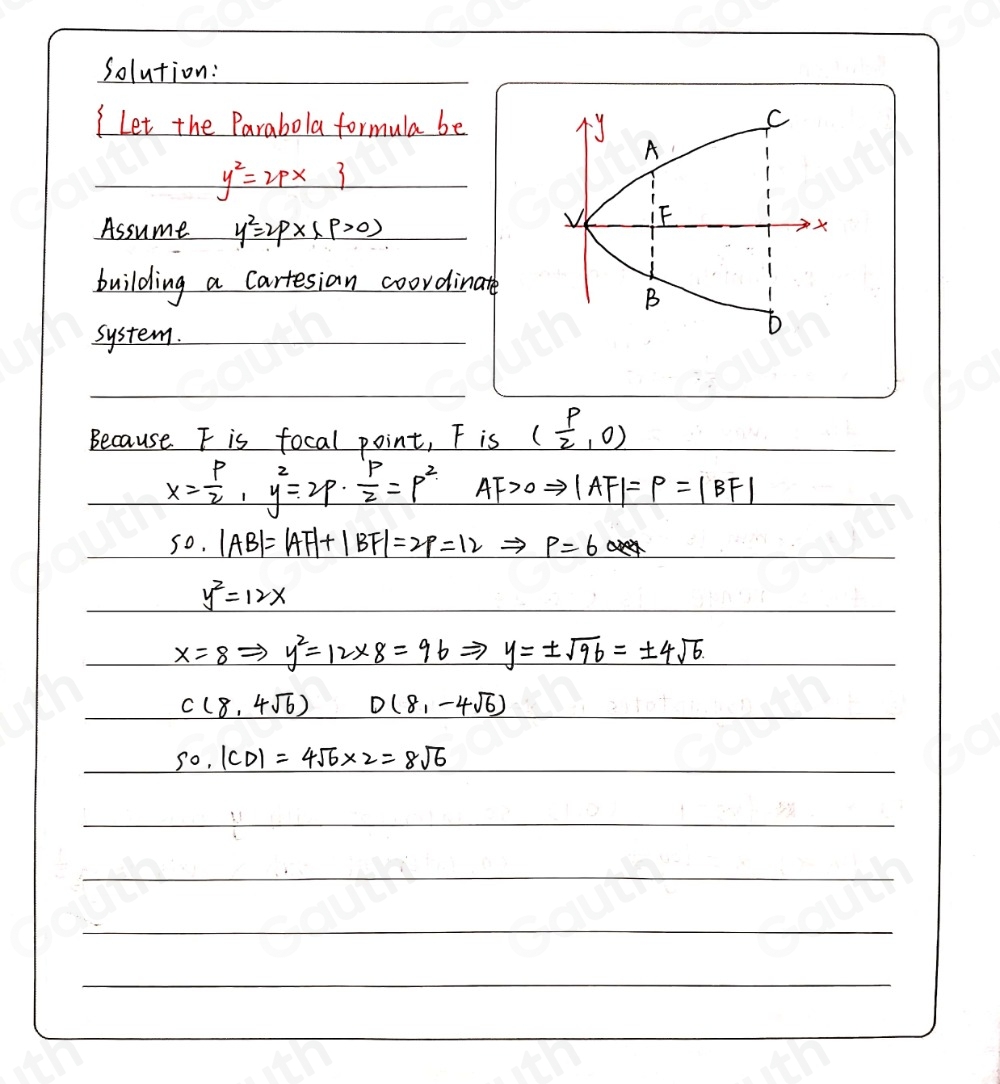 Solution:
{ Let the Parabola formula be
y² = 2px }
Assume y²=2px (P>0)
building a Cartesian coordinate
system.
y
C
A
V
F
x
B
D
Because F is focal point, F is (P/2, 0)
x = P/2, y² = 2p · P/2 = p² AF>0 ⇒ |AF| = P = |BF|
so, |AB| = |AF| + |BF| = 2p = 12 ⇒ P = 6
y² = 12x
x = 8 ⇒ y² = 12×8 = 96 ⇒ y = ±√96 = ±4√6.
C(8, 4√6) D(8, -4√6)
so, |CD| = 4√6 × 2 = 8√6
Gauth